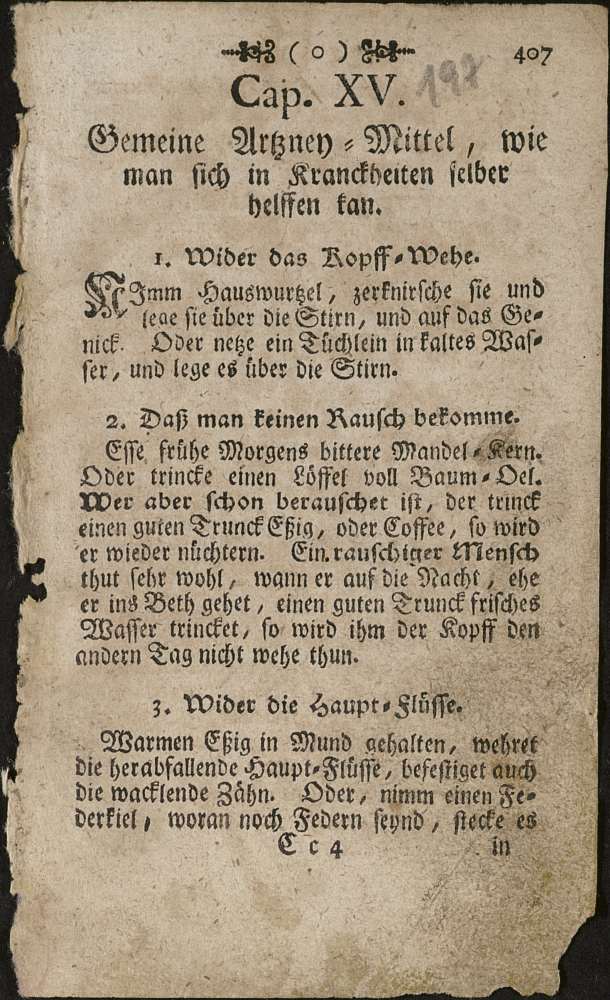 ( o ) 407
197
Cap. XV.
Gemeine Artzney-Mittel, wie
man sich in Kranckheiten selber
helffen kan.
1. Wider das Kopff-Wehe.
NImm Hauswurtzel, zerknirsche sie und
lege sie über die Stirn, und auf das Ge-
nick. Oder netze ein Tüchlein in kaltes Was-
ser, und lege es über die Stirn.
2. Daß man keinen Rausch bekomme.
Esse frühe Morgens bittere Mandel-Kern.
Oder trincke einen Löffel voll Baum-Oel.
Wer aber schon berauschet ist, der trinck
einen guten Trunck Eßig, oder Coffee, so wird
er wieder nüchtern. Ein rauschiger Mensch
thut sehr wohl, wann er auf die Nacht, ehe
er ins Beth gehet, einen guten Trunck frisches
Wasser trincket, so wird ihm der Kopff den
andern Tag nicht wehe thun.
3. Wider die Haupt-Flüsse.
Warmen Eßig in Mund gehalten, wehret
die herabfallende Haupt-Flüsse, befestiget auch
die wacklende Zähn. Oder, nimm einen Fe-
derkiel, woran noch Federn seynd, stecke es
C c 4 in